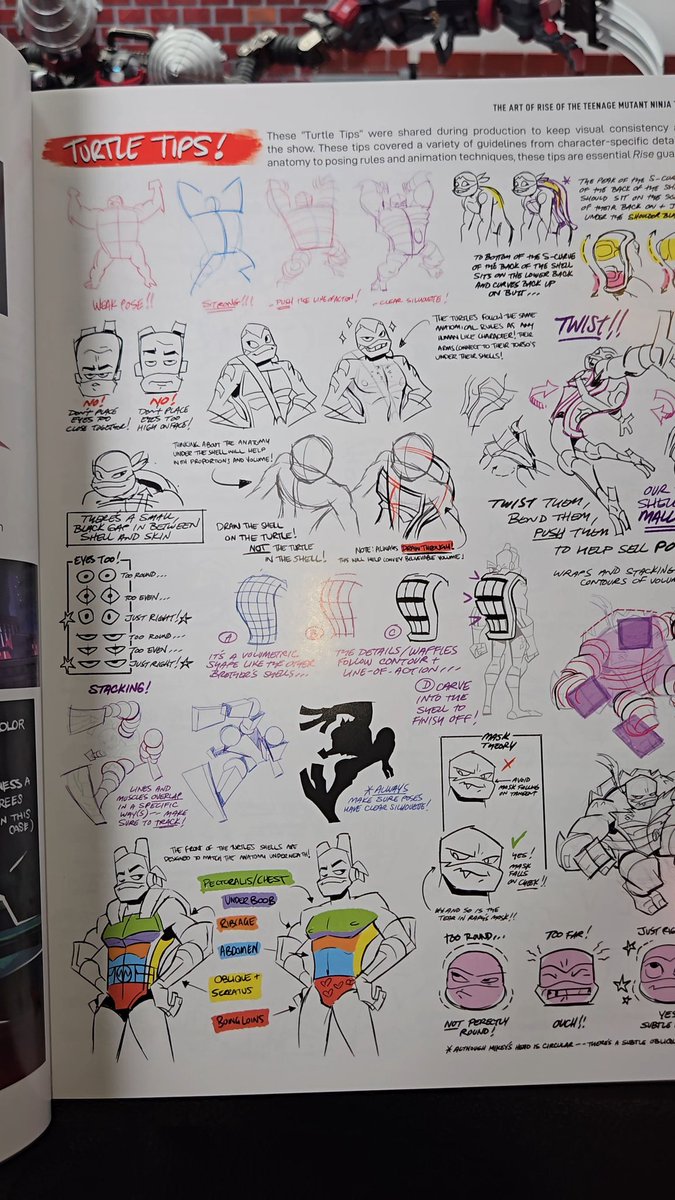 THE ART OF RISE OF THE TEENAGE MUTANT NINJA
TURTLE TIPS!
These "Turtle Tips" were shared during production to keep visual consistency
the show. These tips covered a variety of guidelines from character-specific
anatomy to posing rules and animation techniques, these tips are essential Rise
WEAK POSE!!
STRONG!!!
- PUSH THE LINE OF ACTION!
- CLEAR SILHOUETTE!
THE PEAK OF THE S-CURVE
OF THE BACK OF THE
SHOULD SIT ON THE
OF THEIR BACK ON +
UNDER THE SHOULDER
TO BOTTOM OF THE S-CURVE
OF THE BACK OF THE SHELL
SITS ON THE LOWER BACK
AND CURVES BACK UP
ON BUTT...
THE TURTLES FOLLOW THE SAME
ANATOMICAL RULES AS ANY
HUMAN LIKE CHARACTER! THEIR
ARMS CONNECT TO THEIR TORSO'S
UNDER THEIR SHELLS!
TWIST!!
NO!
DON'T PLACE
EYES TOO
CLOSE TOGETHER!
NO!
DON'T PLACE
EYES TOO
HIGH ON FACE!
THINKING ABOUT THE ANATOMY
UNDER THE SHELL WILL HELP
WITH PROPORTION! AND VOLUME!
THERE'S A SMALL
BLACK GAP IN BETWEEN
SHELL AND SKIN
DRAW THE SHELL
ON THE TURTLE!
NOT THE TURTLE
IN THE SHELL!
NOTE: ALWAYS DRAW THROUGH!
THIS WILL HELP CONVEY BELIEVABLE VOLUME!
TWIST THEM,
BEND THEM,
PUSH THEM
TO HELP SELL
OUR
WRAPS AND STACKING
CONTOURS OF
EYES TOO!
TOO ROUND...
TOO EVEN...
JUST RIGHT!
TOO ROUND...
TOO EVEN...
JUST RIGHT!
A
IT'S A VOLUMETRIC
SHAPE LIKE THE OTHER
BROTHER'S SHELLS...
B
C
THE DETAILS/WAFFLES
FOLLOW CONTOUR +
LINE-OF-ACTION...
D CARVE
INTO THE
SHELL TO
FINISH OFF!
STACKING!
LINES AND
MUSCLES OVERLAP
IN A SPECIFIC
WAY(S)-- MAKE
SURE TO TRACK!
*ALWAYS
MAKE SURE POSES
HAVE CLEAR SILHOUETTE!
MASK
THEORY
AVOID
MASK FALLING ON
TANGENT
YES!
MASK
FALLS
ON CHEEK!!
AND SO IS THE
TEAR IN RAPH'S MASK!!
THE FRONT OF THE TURTLES SHELLS ARE
DESIGNED TO MATCH THE ANATOMY UNDERNEATH!
PECTORALIS/CHEST
UNDERBOOB
RIBCAGE
ABDOMEN
OBLIQUE +
SERRATUS
BOING LOINS
TOO ROUND...
NOT PERFECTLY
ROUND!
TOO FAR!
OUCH!!
JUST
YES
SUBTLE
* ALTHOUGH MIKEY'S HEAD IS CIRCULAR -- THERE'S A SUBTLE
OLOR
NESS A
REES
IN THIS
CASE)